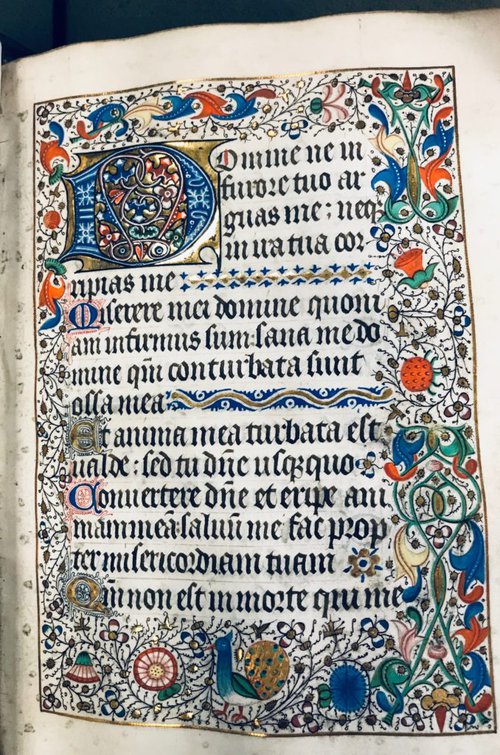 Domine ne in
furore tuo ar
guas me : neqꝫ
in ira tua cor
ripias me
Miserere mei domine quoni
am infirmus sum: sana me do
mine qm̄ conturbata sunt
ossa mea
Et anima mea turbata est
ualde : sed tu dn̄e usqꝫ quo
Conuertere dn̄e et eripe ani
mam meā: saluū me fac prop
ter misericordiam tuam
Qm̄ non est in morte qui me